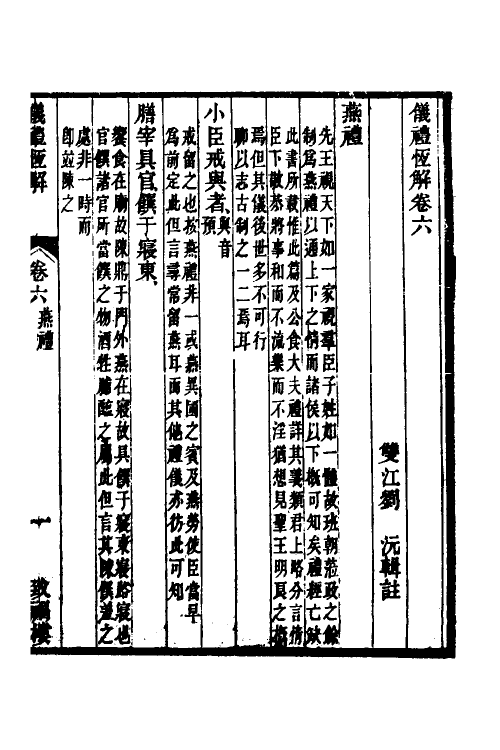 儀禮恆解卷六
雙江劉 沅輯註
燕禮
先王視天下如一家視羣臣子姓如一體故班朝蒞政之餘
制為燕禮以通上下之情而諸侯以下概可知矣禮經亡缺
此書所載惟此篇及公食大夫禮詳其義類君上略分言情
臣下敬恭將事和而不流樂而不淫猶想見聖王明良之
焉但其儀後世多不可行
聊以志古制之一二焉耳
小臣戒與者與音預
戒留之也按燕禮非一或燕異國之賓及燕勞使臣當早
為前定此但言尋常留燕耳而其他禮儀亦彷此可知
膳宰具官饌于寢東
饗食在廟故陳鼎于門外燕在寢故具饌于寢東寢路寢也
官饌諸官所當饌之物酒牲脯醢之屬此但言其陳饌並之
處非一時而
卽竝陳之
儀禮恆解
卷六 燕禮
十
致福樓